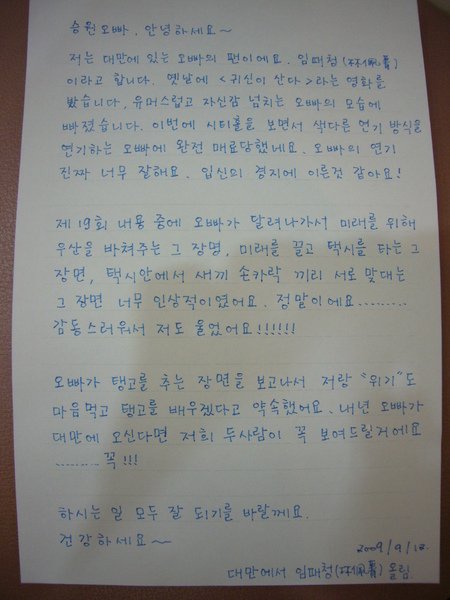 승원오빠, 안녕하세요~
저는 대만에 있는 오빠의 팬이에요. 임패청(林佩菁)
이라고 합니다. 옛날에 <귀신이 산다>라는 영화를
봤습니다. 유머스럽고 자신감 넘치는 오빠의 모습에
빠졌습니다. 이번에 시티홀을 보면서 색다른 연기 방식을
연기하는 오빠에 완전 매료당했네요. 오빠의 연기
진짜 너무 잘해요. 입신의 경지에 이른것 같아요!
제 19회 내용 중에 오빠가 달려나가서 미래를 위해
우산을 바쳐주는 그 장명, 미래를 끌고 택시를 타는 그
장면, 택시안에서 새끼 손카락 끼리 서로 맞대는
그 장면 너무 인상적이였어요. 정말이에요.........
감동스러워서 저도 울었어요!!!!!!
오빠가 탱고를 추는 장면을 보고나서 저랑 "위기"도
마음먹고 탱고를 배우겠다고 약속했어요. 내년 오빠가
대만에 오신다면 저희 두사람이 꼭 보여드릴거에요
.........꼭!!!
하시는 일 모두 잘 되기를 바랄께요.
건강하세요~
2009/9/12.
대만에서 임패청 올림